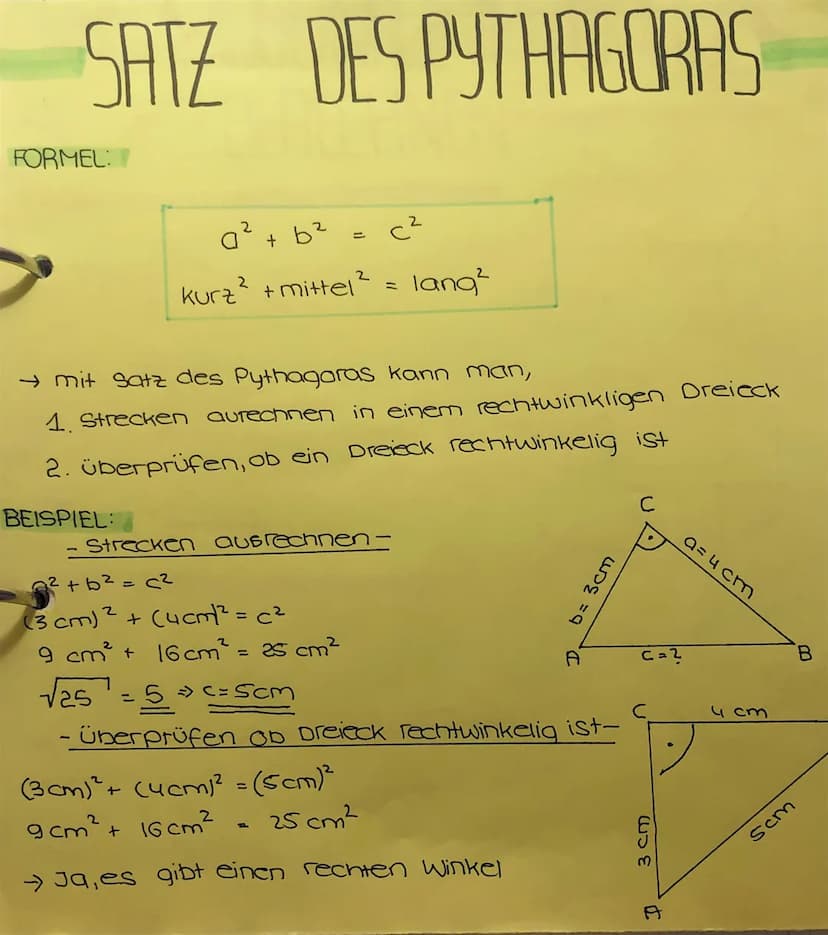 SATZ DES PYTHAGORAS
FORMEL:
a² + b² = c²
kurz² + mittel² = lang²
→ mit Satz des Pythagoras kann man,
1. Strecken aurechnen in einem rechtwinkligen Dreieck
2. überprüfen, ob ein Dreieck rechtwinkelig ist
BEISPIEL:
- Strecken ausrechnen -
a² + b² = c²
(3 cm)² + (4cm)² = c²
9 cm² + 16 cm² = 25 cm²
√25 = 5 ⇒ c = 5cm
C
b = 3cm
a = 4 cm
A
c = ?
B
- Überprüfen ob Dreieck rechtwinkelig ist -
(3cm)² + (4cm)² = (5cm)²
9 cm² + 16 cm² = 25 cm²
→ Ja, es gibt einen rechten Winkel
C
4 cm
3 cm
5cm
A